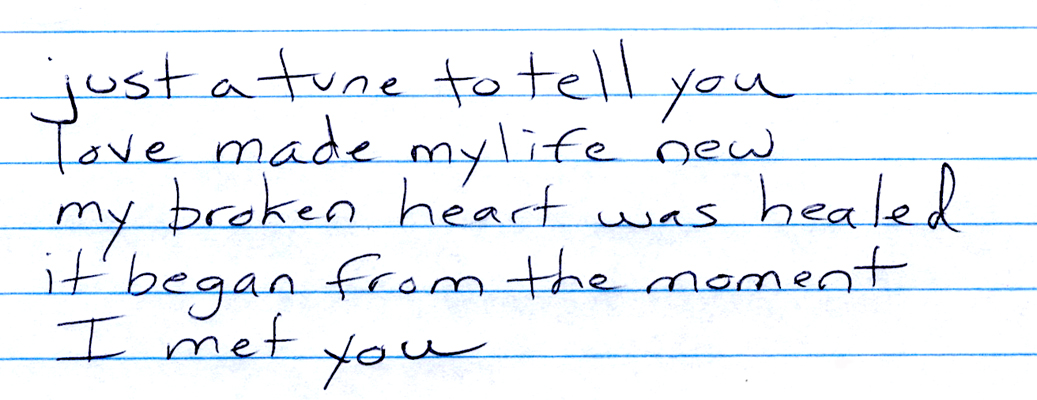 just a tune to tell you
love made my life new
my broken heart was healed
it began from the moment
I met you